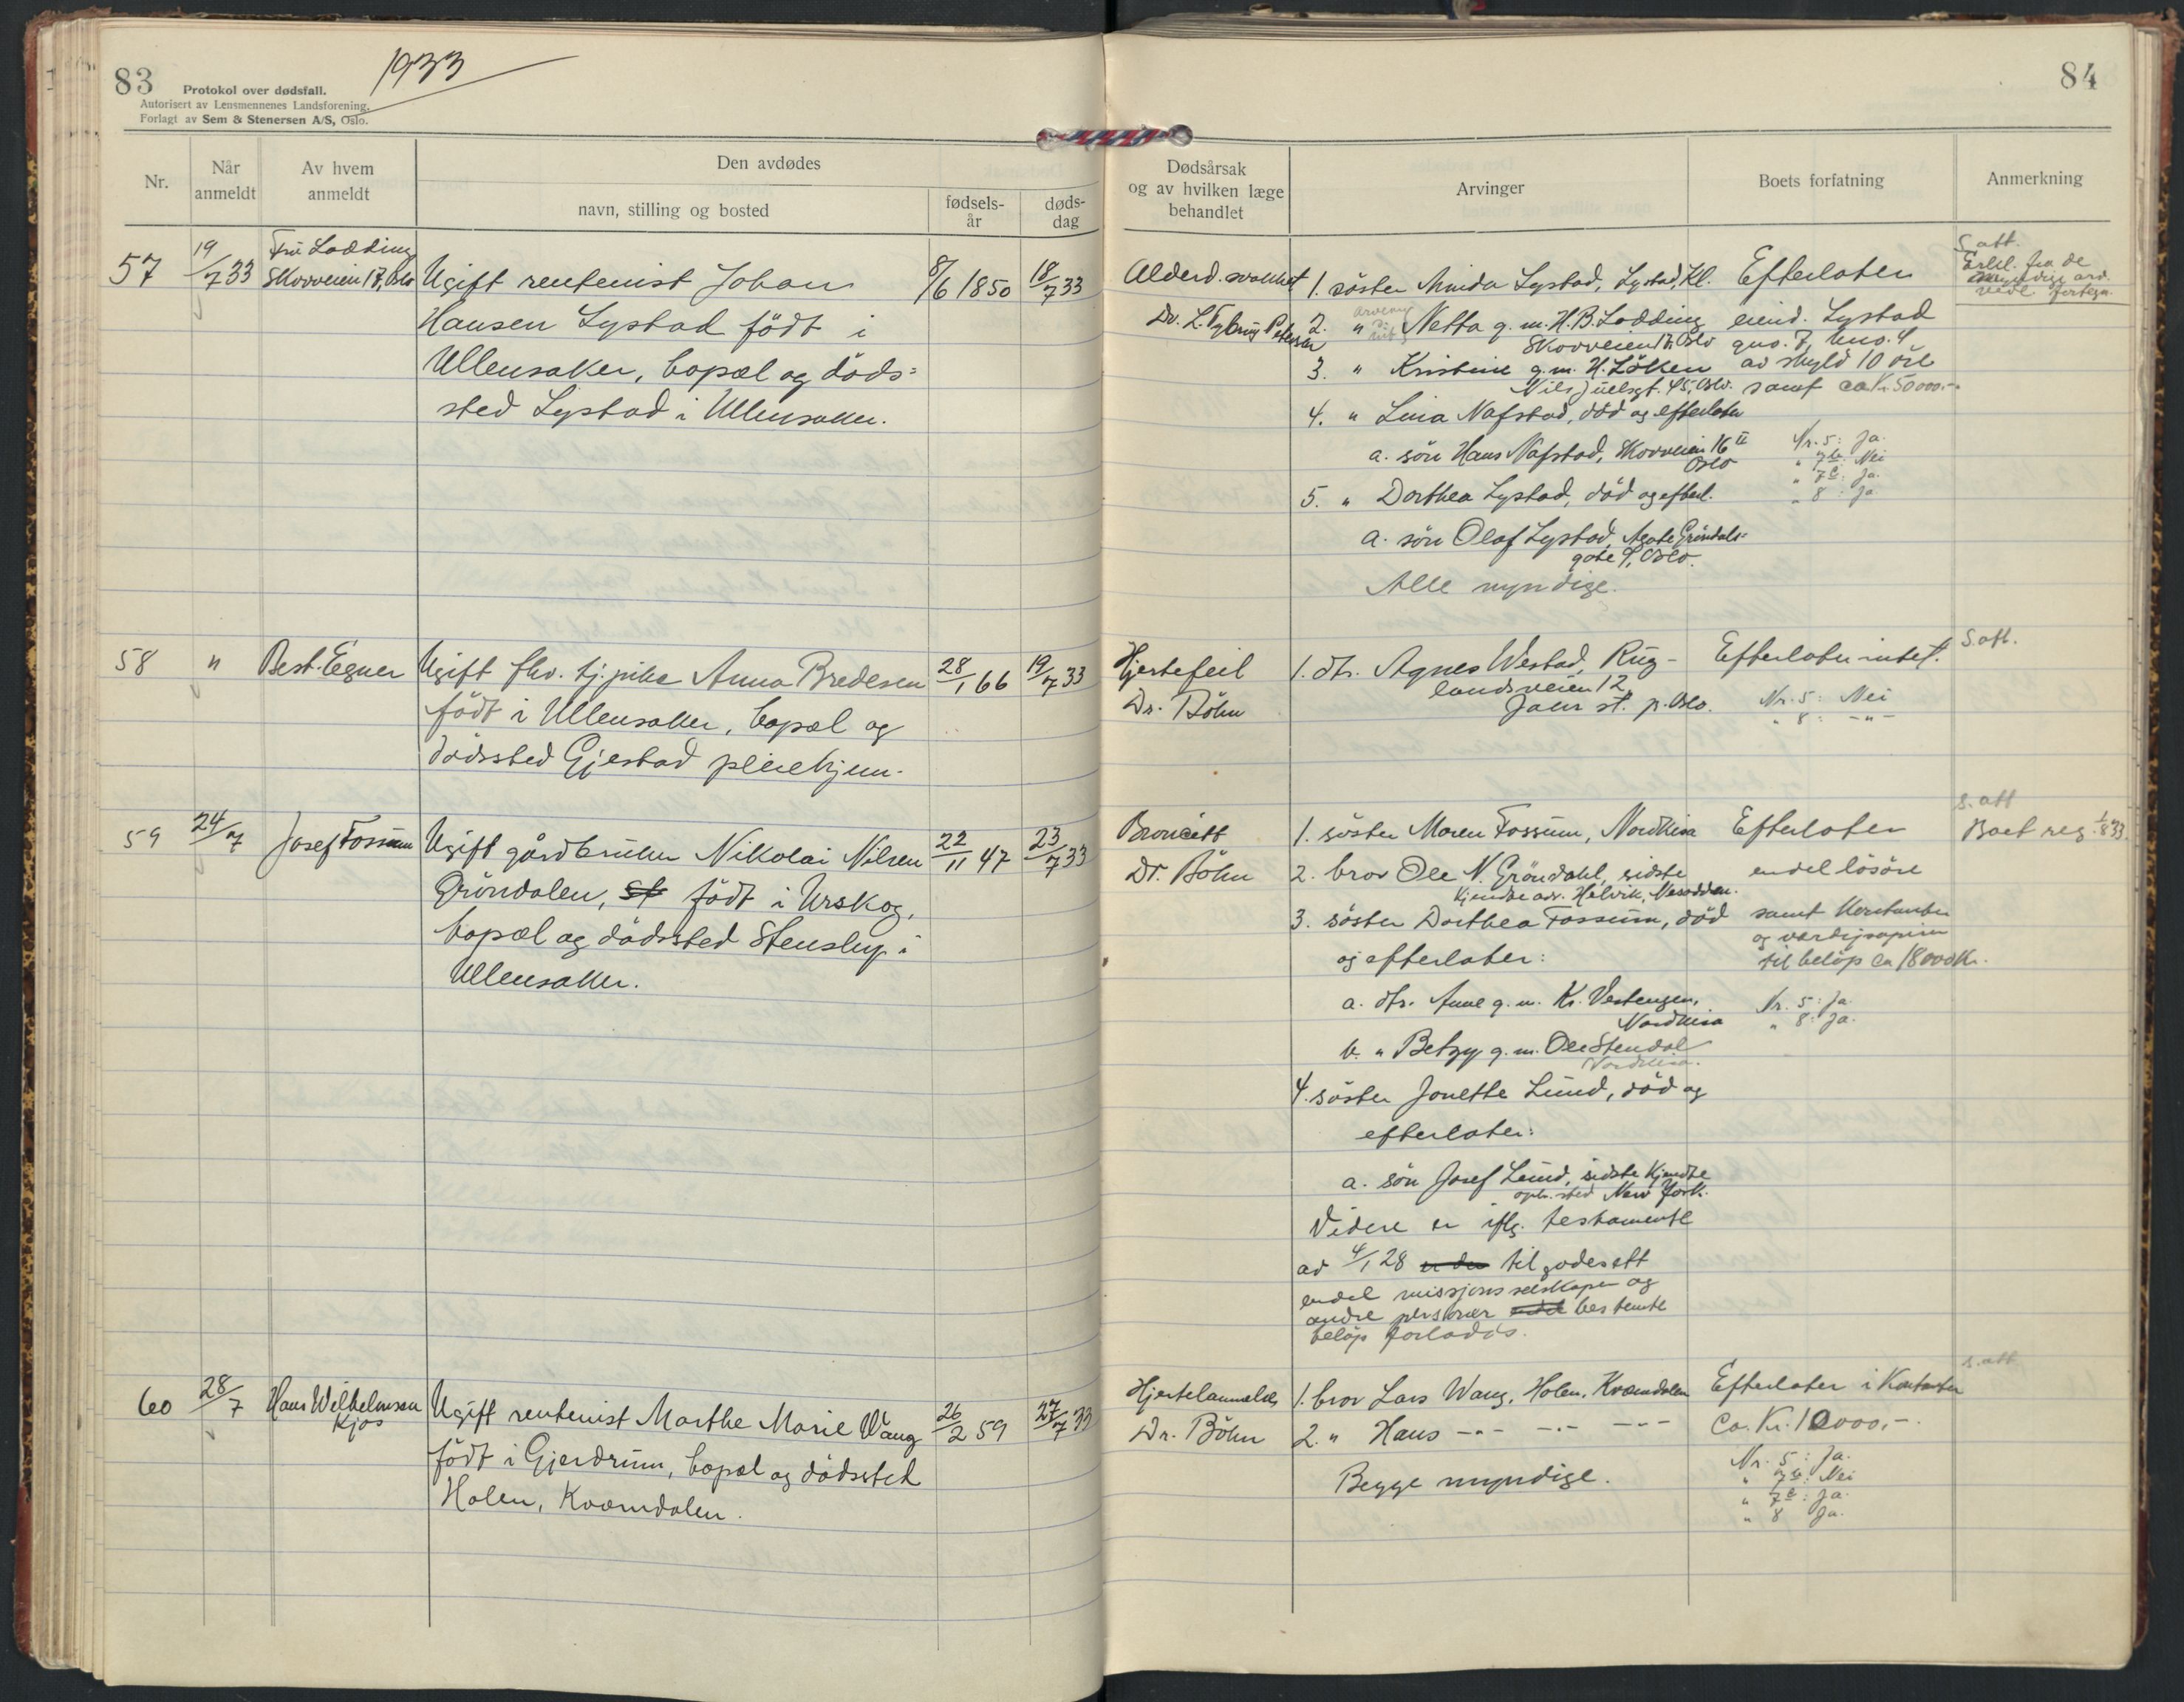 83
Protokol over dødsfall.
1933
Autorisert av Lensmennenes Landsforening.
Forlagt av Sem & Stenersen A/S, Oslo.
84
Nr.
Når anmeldt
Av hvem anmeldt
Den avdødes
navn, stilling og bosted
fødsels-
år
døds-
dag
Dødsårsak
og av hvilken læge
behandlet
Arvinger
Boets forfatning
Anmerkning
57
19/7 33
Fru Lodding
Skovveien 17, Oslo
Ugift rentenist Johan
Hansen Lystad födt i
Ullensaker, bopæl og döds=
sted Lystad i Ullensaker.
8/6 1850
18/7 33
Alderd. svakhet
Dr. L. Tybring Petersen
1. söster Minda Lystad, Lystad, Kl.
2. " Netta g. m. H. B. Lodding
Skovveien 17, Oslo
3. " Kristine g. m. H. Löken
Nils Juelsgt. 45, Oslo.
4. " Lina Nafstad, död og efterlater
a. sön Hans Nafstad, Skovveien 16 II
Oslo
5. " Dorthea Lystad, död og efterl.
a. sön Olaf Lystad, Agate Gröndals=
gate 9, Oslo.
Alle myndige.
Efterlater
eiend. Lystad
gno. 7, bno. 4
av skyld 10 öre
samt ca Kr. 50000.-
Nr. 5: Ja.
" 7b: Nei
" 7c: Ja.
" 8: Ja
S. att.
Erkl. fra de
58
"
Best. Egner
Ugift fhv. tj.pike Anna Bredesen
födt i Ullensaker, bopæl og
dödssted Gjestad pleiehjem.
28/1 66
19/7 33
Hjertefeil
Dr. Böhn
1. dtr. Agnes Westad, Rug-
landsveien 12,
Jahr st. p. Oslo.
Efterlater intet.
Nr. 5: Nei
" 8: -"-
S. att.
59
24/7
Josef Fossum
Ugift gårdbruker Nikolai Nilsen
Gröndalen, st födt i Urskog,
bopæl og dödssted Stenslup i
Ullensaker.
22/11 47
23/7 33
Broncitt
Dr. Böhn
1. söster Maren Fossum, Nordkisa
2. bror Ole N. Gröndahl, sidste
kjendte adr. Helvik, Nesodden.
3. söster Dorthea Fossum, död
og efterlater:
a. dtr. Anne g. m. Kr. Vestengen,
Nordkisa
b. " Betzy g. m. Ole Stendal
Nordkisa.
4. söster Jonette Lund, död og
efterlater:
a. sön Josef Lund, sidste kjendte
oph.sted New York.
Videre er iflg. testamente
av 4/1 28 er der tilgodesett
endel missjonsselskaper og
andre personer endel bestemte
belöp forlods.
Efterlater
endel lösöre
samt kontanter
og værdipapirer
til belöp ca 18000 Kr.
Nr. 5: Ja.
" 8: Ja.
S. att
Boet reg. 1/8 33.
60
28/7
Hans Wilhelmsen
Kjos
Ugift rentenist Marthe Marie Wang
födt i Gjerdrum, bopæl og dödssted
Holen, Kvæmdalen.
26/2 59
27/7 33
Hjertelammelse
Dr. Böhn
1. bror Lars Wang, Holen, Kvæmdalen
2. " Hans -"- -"- -"-
Begge myndige.
Efterlater i Kontanter
Ca. Kr. 10000,-.
Nr. 5: Ja.
" 7b: Nei
" 7c: Ja.
" 8 Ja.
S. att